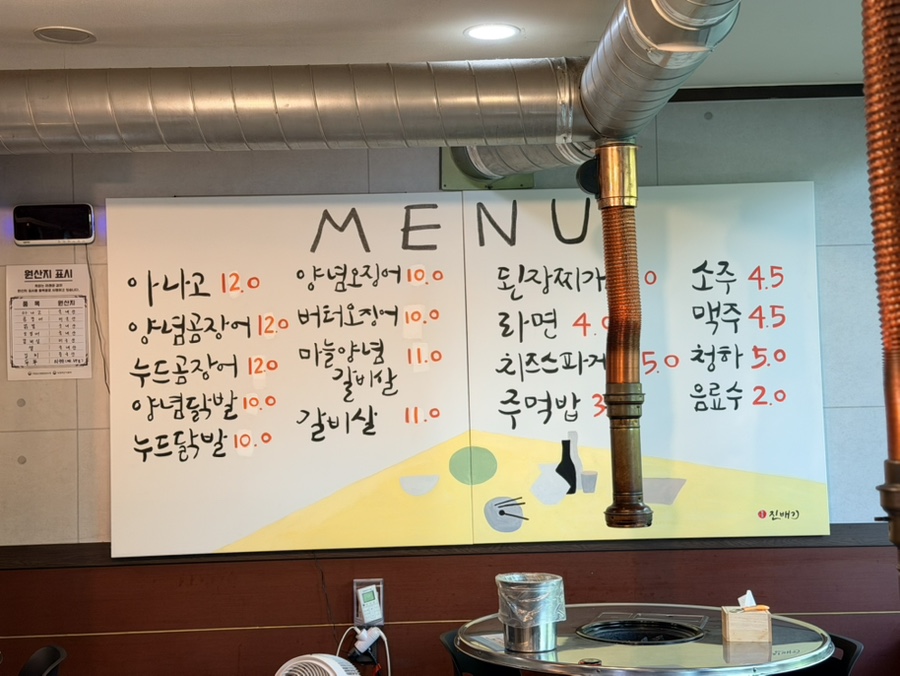 MENU
아나고 12.0
양념곰장어 12.0
누드곰장어 12.0
양념닭발 10.0
누드닭발 10.0
양념오징어 10.0
버터오징어 10.0
마늘양념 11.0
갈비살
갈비살 11.0
된장찌개
라면 4.0
치즈스파게 5.0
주먹밥 3
소주 4.5
맥주 4.5
청하 5.0
음료수 2.0
원산지 표시
품목 원산지